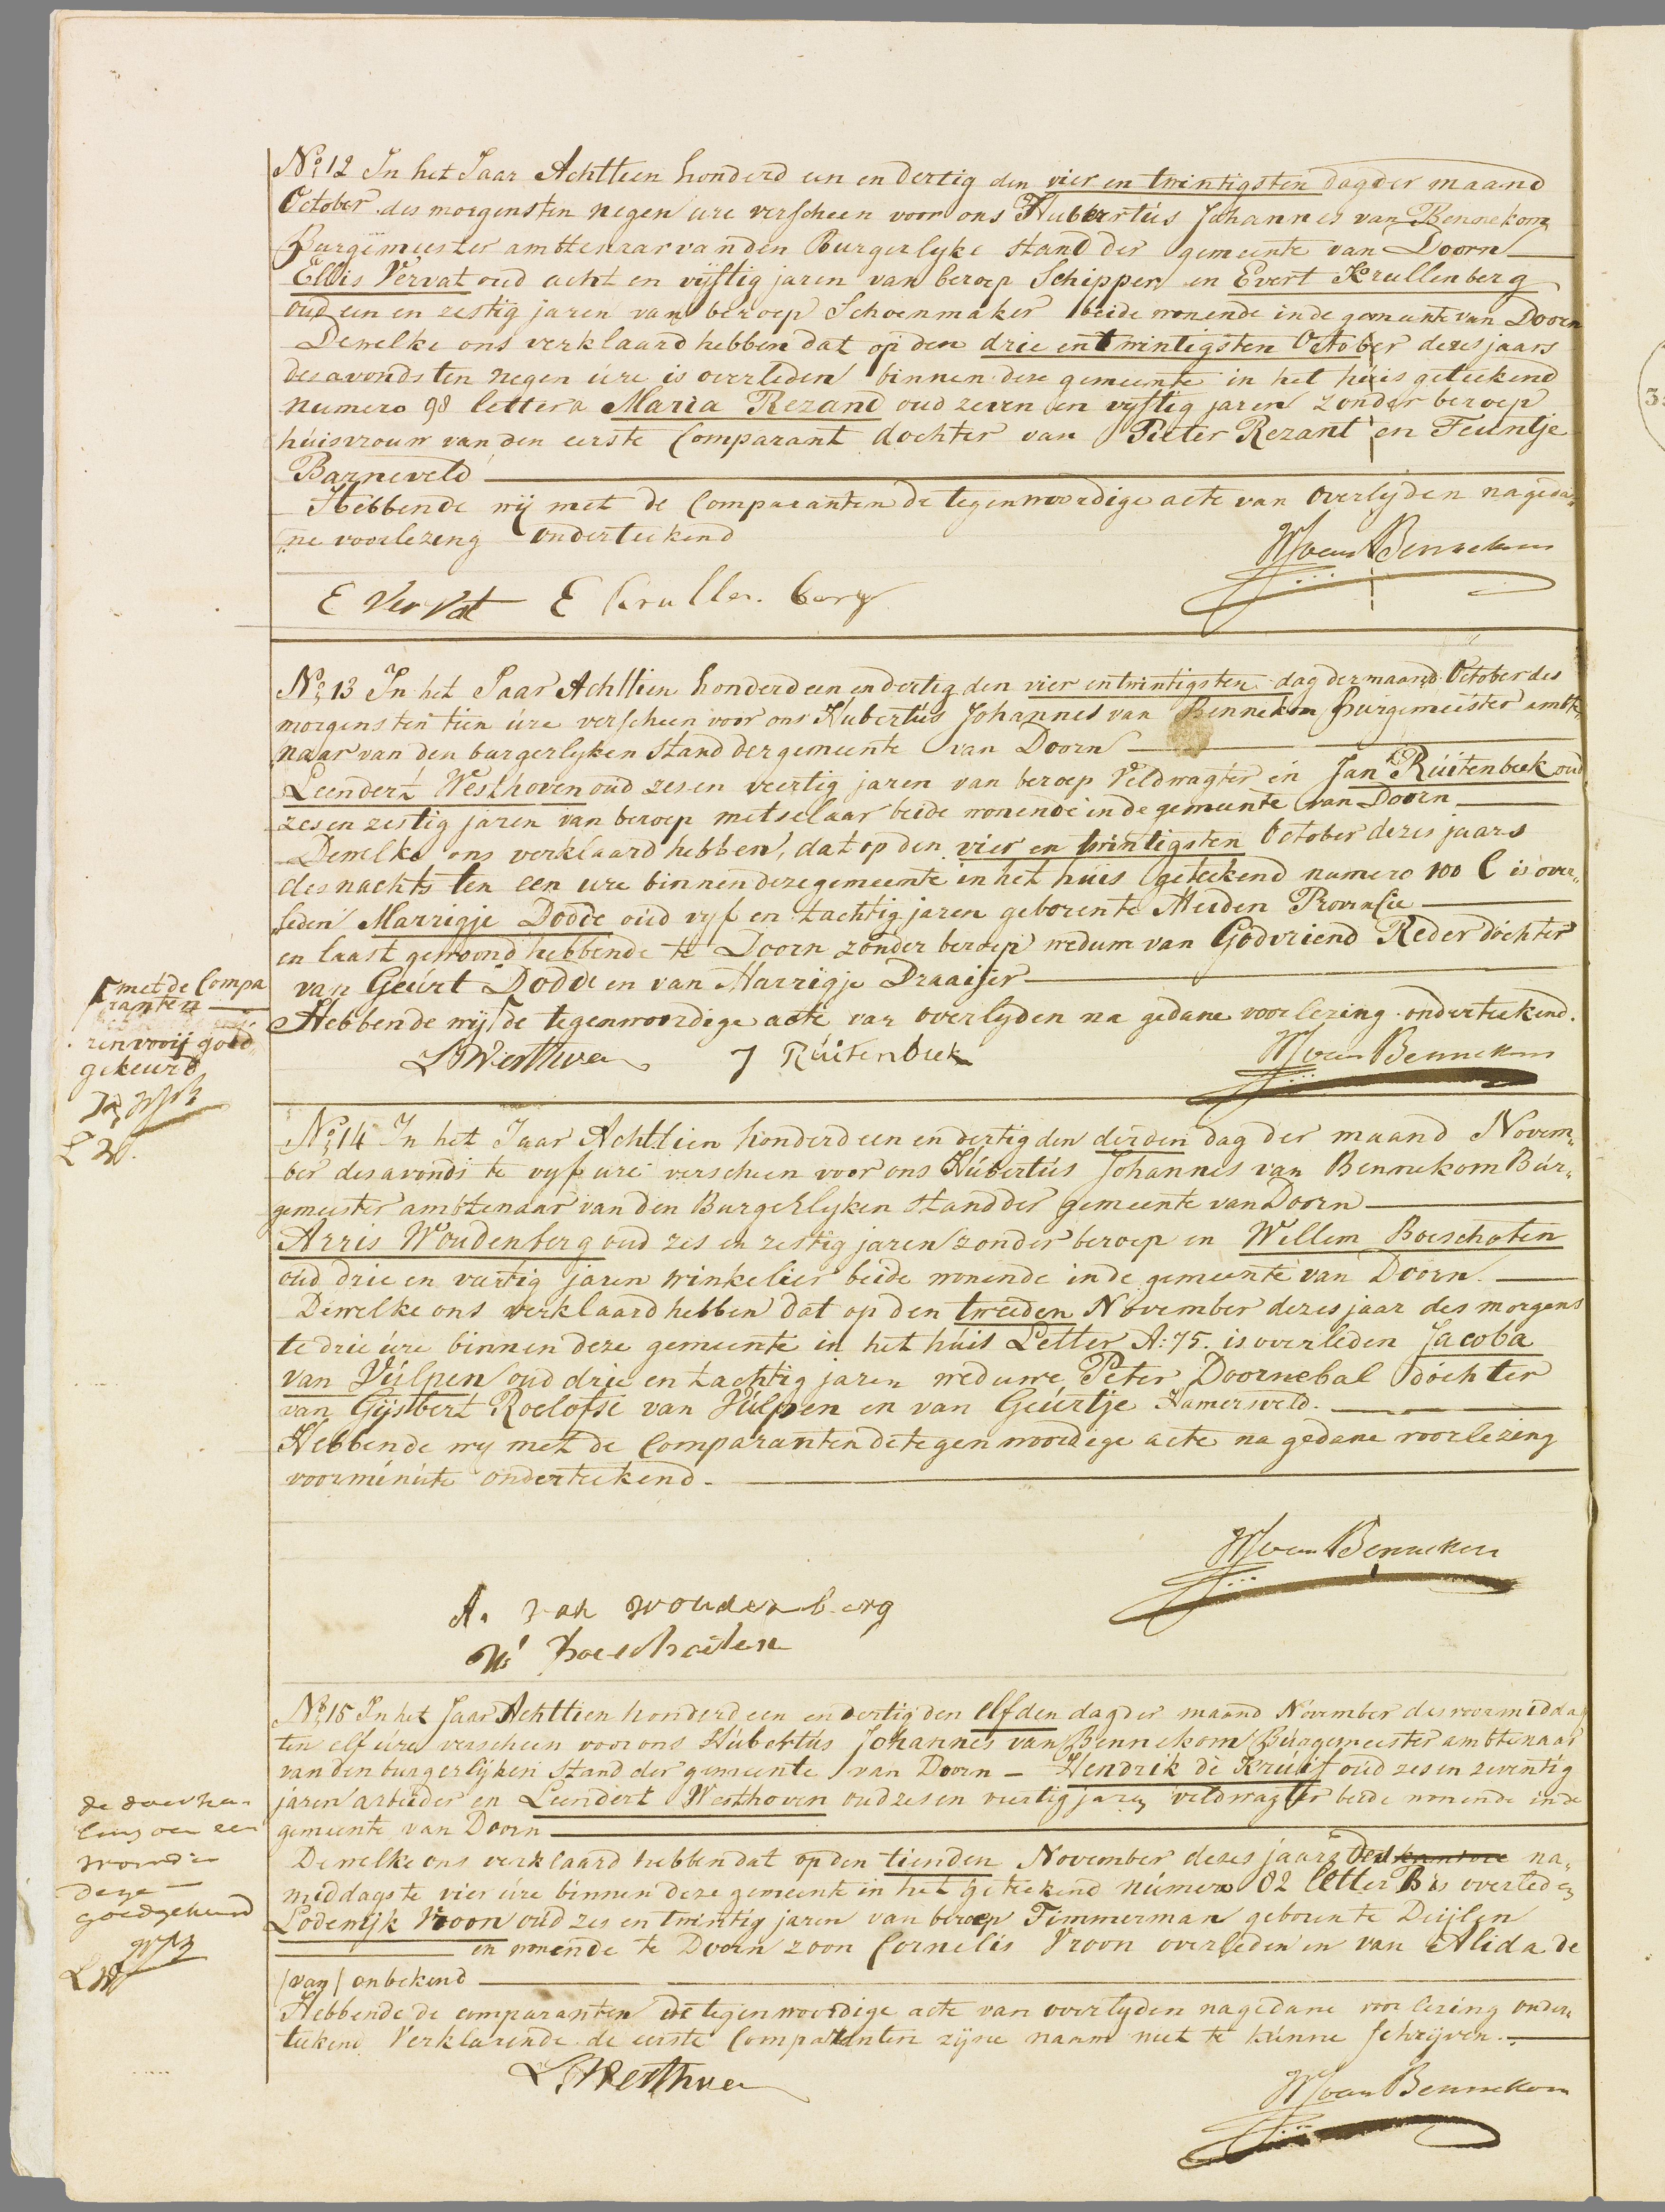 No. 12 In het Jaar Achttien honderd een en dertig den vier en twintigsten dag der maand
October des morgens ten negen ure verscheen voor ons Hubertus Johannes van Bennekom
Burgemeester ambtenaar van den Burgerlyke Stand der gemeente van Doorn
Ellis Vervat oud acht en vyftig jaren van beroep Schipper en Evert Krullenberg
oud een en zestig jaren van beroep Schoenmaker beide wonende in de gemeente van Doorn
Dewelke ons verklaard hebben dat op den drie en twintigsten October dezes jaars
des avonds ten negen ure is overleden binnen deze gemeente in het huis geteekend
numero 98 letter a Maria Rezand oud zeven en vyftig jaren zonder beroep
huisvrouw van den eerste Comparant dochter van Pieter Rezant en Teuntje
Barneveld
Hebbende wij met de Comparanten de tegenwoordige acte van overlyden na geda„
„ne voorlezeng onderteekend
HJ van Bennekom
E Vervat E Krullen berg
No. 13 In het Jaar Achttien honderd een en dertig den vier en twintigsten dag der maand October des
morgens ten tien ure verscheen voor ons Hubertus Johannes van Bennekom Burgemeester ambte„
„naar van den burgerlyken Stand der gemeente van Doorn
Leendert Westhoven oud zes en veertig jaren van beroep Veldwagter en Jan Ruitenbeek oud
zes en zestig jaren van beroep metselaar beide wonende in de gemeente van Doorn
Dewelke ons verklaard hebben, dat op den vier en twintigsten October dezes jaars
des nachts ten een ure binnen deze gemeente in het huis geteekend numero 100 C is over„
„leden Marrigje Dodde oud vyf en tachtig jaren geboren te Meiden Provinsie
en laast gewoond hebbende te Doorn zonder beroep wedum van Godvriend Reder dochter
van Geurt Dodde en van Marrigje Draaijer
met de Compa
ranten
renvooij goed„
gekeurd
Hebbende wij de tegenwoordige acte van overlyden na gedane voorlezing onderteekend.
L Westhoven J Ruitenbeek HJ van Bennekom
No. 14 In het Jaar Achttien honderd een en dertig den derden dag der maand Novem„
ber des avonds te vyf ure verscheen voor ons Hubertus Johannes van Bennekom Bur„
gemeester ambtenaar van den Burgerlyken Stand der gemeente van Doorn
Arris Woudenberg oud zes en zestig jaren zonder beroep en Willem Boeschoten
oud drie en veertig jaren winkelier beide wonende in de gemeente van Doorn.
Dewelke ons verklaard hebben dat op den tweeden November dezes jaar des morgens
te drie ure binnen deze gemeente in het huis Letter A: 75. is overleden Jacoba
van Vulpen oud drie en tachtig jaren weduwe Peter Doornebal dochter
van Gijsbert Roelofse van Vulpen en van Geurtje Hamersveld.
Hebbende wy met de Comparanten de tegenwoordige acte na gedane voorlezing
voor minute onderteekend.
HJ van Bennekom
A. van woudenberg
W Boeschoten
No. 15 In het Jaar Achttien honderd een en dertig den elfden dag der maand November des voormiddags
ten elf ure verscheen voor ons Hubertus Johannes van Bennekom Burgemeester ambtenaar
van den burgerlijken Stand der gemeente van Doorn - Hendrik de Kruif oud zes en zeventig
jaren arbeider en Leendert Westhoven oud zes en veertig jaren veldwagter beide wonende in de
gemeente van Doorn
de doorha„
ling van een
woord in
deze
goedgekeurd
Dewelke ons verklaard hebben dat op den tienden November dezes jaars des na„
middags te vier ure binnen deze gemeente in het geteekend numero 82 letter B is overleden
Lodewijk Vroon oud zes en twintig jaren van beroep Timmerman geboren te Duijlen
en wonende te Doorn zoon Cornelis Vroon overleden en van Alida de
(van) onbekend
Hebbende de comparanten de tegenwoordige acte van overlyden na gedane voorlezing onder„
teekend Verklarende de eerste Comparanten zijne naam niet te kunne schrijven.
L Westhoven
HJ van Bennekom